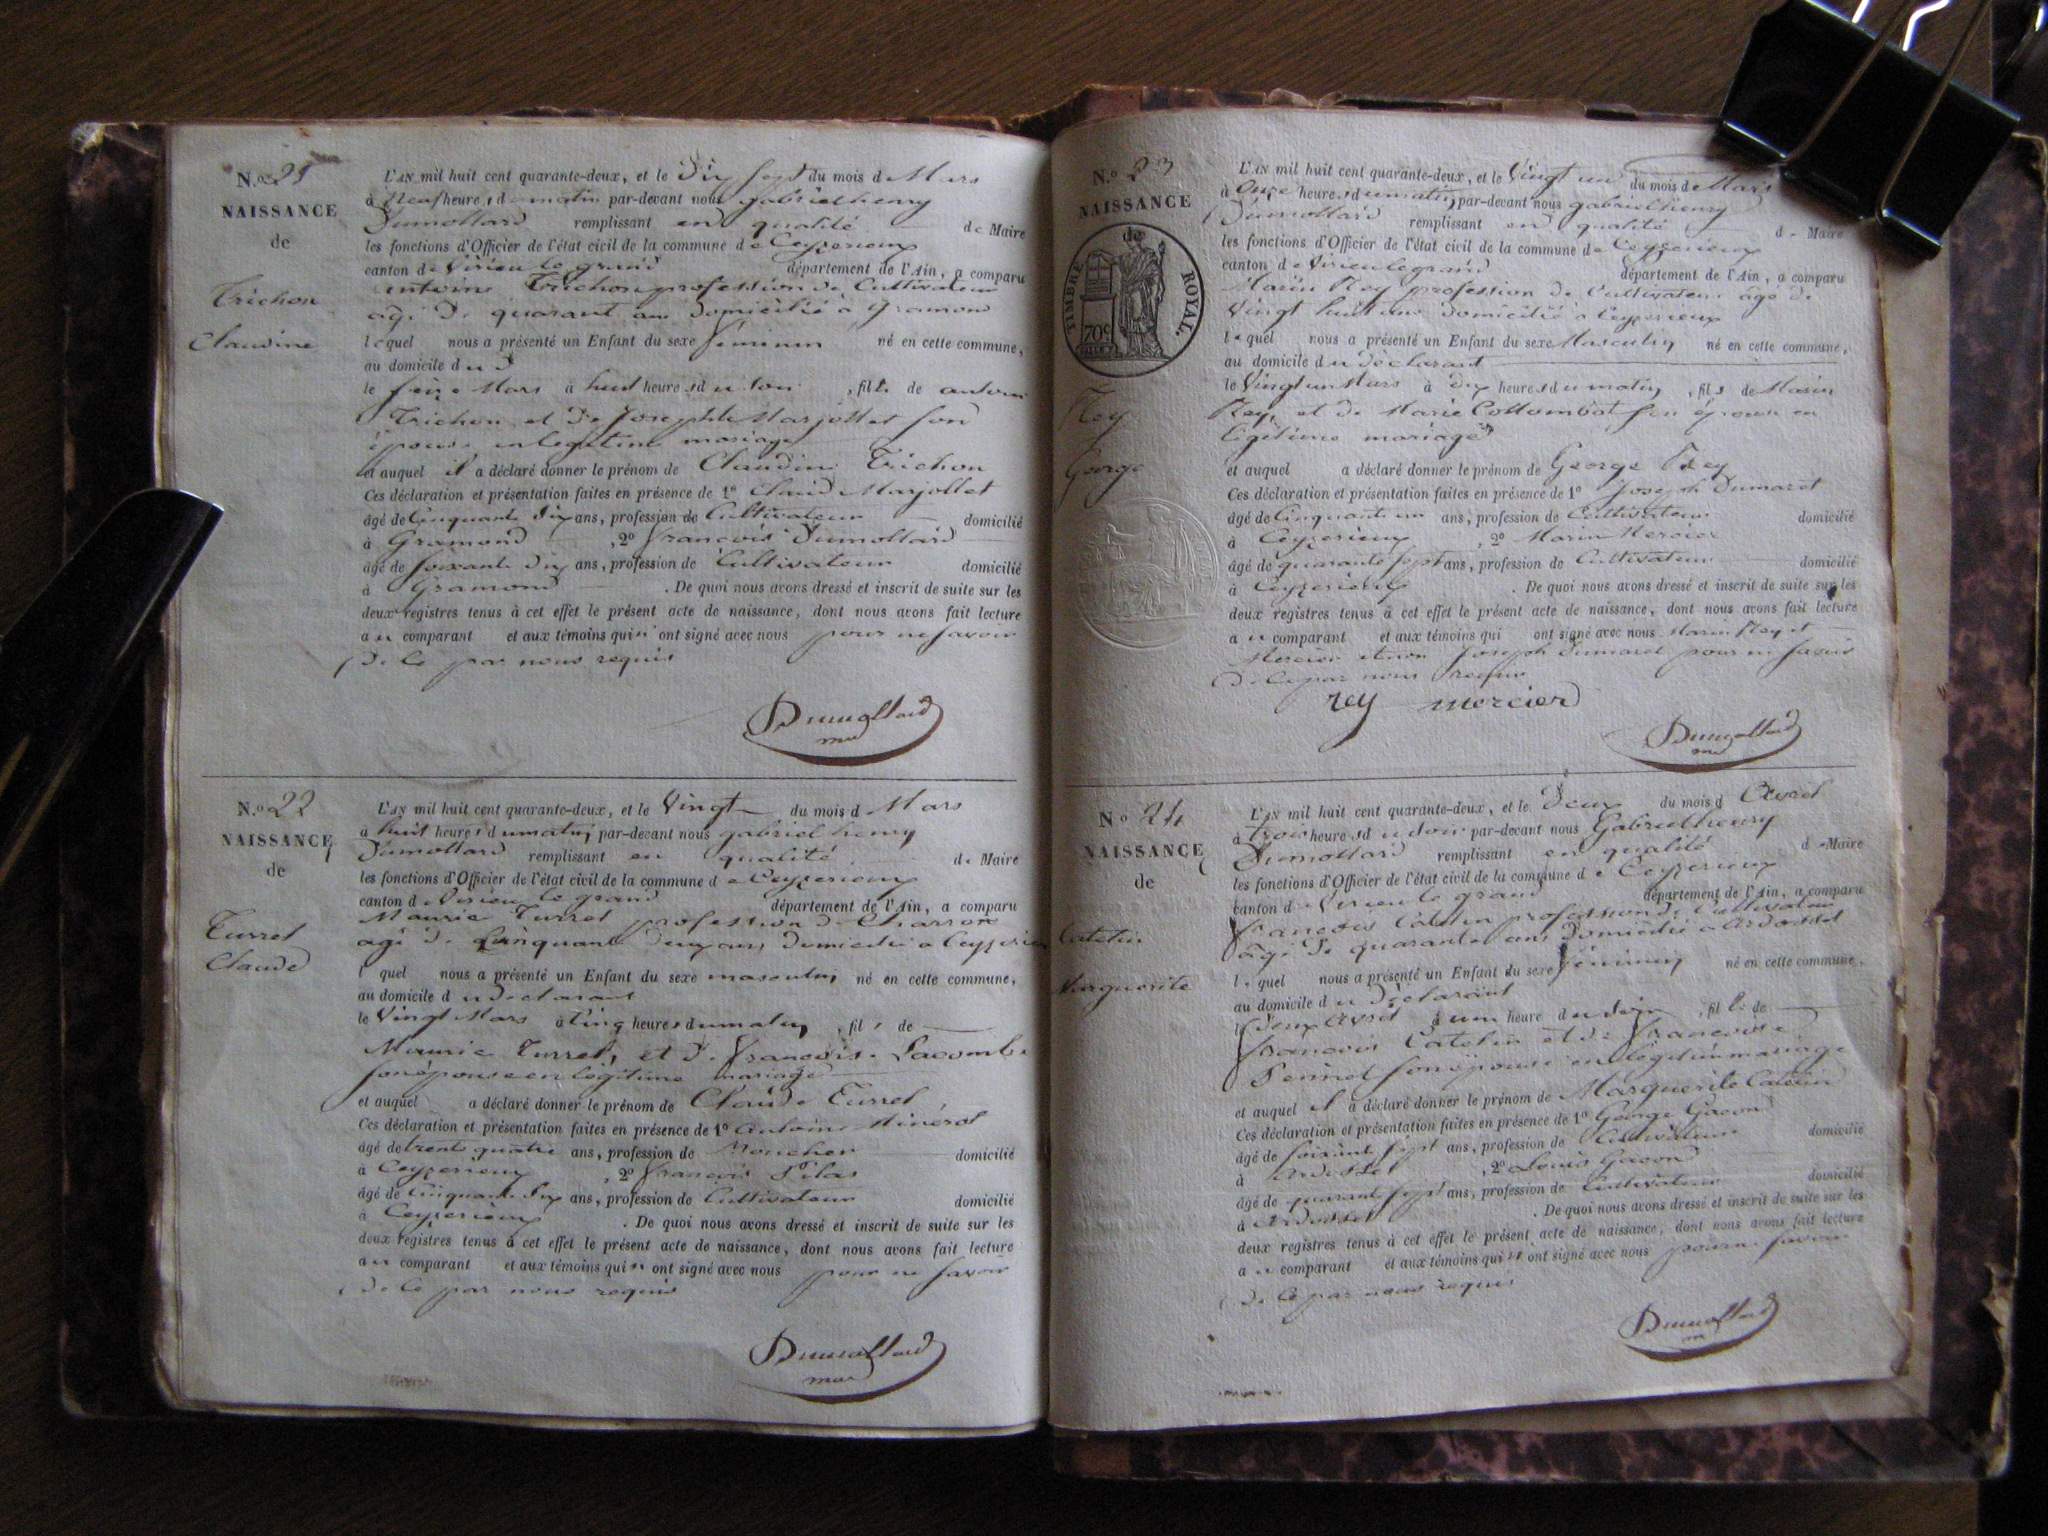 N.º 21
NAISSANCE
de
Trichon
Claudine
L'AN mil huit cent quarante-deux, et le Dix Sept du mois d Mars
à Neuf heures du matin par-devant nous gabriel henry
Dumollard remplissant en qualité de Maire
les fonctions d'Officier de l'état civil de la commune de Ceyzerieux
canton de Virieu le grand département de l'Ain, a comparu
antoine Trichon profession de Cultivateur
agé de quarant ans domicilié à Gramond
lequel nous a présenté un Enfant du sexe féminin né en cette commune,
au domicile du d
le seize Mars à huit heures du soir, fille de antoine
Trichon et de Josephte Marjollet son
épouse en legitime mariage
et auquel il a déclaré donner le prénom de Claudine Trichon
Ces déclaration et présentation faites en présence de 1º Claud Marjollet
âgé de Cinquante dix ans, profession de Cultivateur domicilié
à Gramond, 2º francois Dumollard
âgé de soixante dix ans, profession de Cultivateur domicilié
à Gramond. De quoi nous avons dressé et inscrit de suite sur les
deux registres tenus à cet effet le présent acte de naissance, dont nous avons fait lecture
au comparant et aux témoins qui n'ont signé avec nous pour ne savoir
de ce par nous requis
Dumollard
N.º 22
NAISSANCE
de
Turrel
Claude
L'AN mil huit cent quarante-deux, et le Vingt du mois d Mars
à huit heures du matin par-devant nous gabriel henry
Dumollard remplissant en qualité de Maire
les fonctions d'Officier de l'état civil de la commune de Ceyzerieux
canton de Virieu le grand département de l'Ain, a comparu
Maurice Turrel profession de Charron
agé de Cinquante deux ans domicilié a Ceyzerieu
l quel nous a présenté un Enfant du sexe masculin né en cette commune,
au domicile du déclarant
le Vingt Mars à Cinq heures du matin, fils de
Maurice Turrel, et de francoise Lacombe
son épouse en légitime mariage
et auquel a déclaré donner le prénom de Claude Turrel
Ces déclaration et présentation faites en présence de 1º antoine Minerol
âgé de trente quatre ans, profession de domicilié
à Ceyzerieux, 2º francois Pilas
âgé de Cinquante dix ans, profession de Cultivateur domicilié
à Ceyzerieux. De quoi nous avons dressé et inscrit de suite sur les
deux registres tenus à cet effet le présent acte de naissance, dont nous avons fait lecture
au comparant et aux témoins qui n ont signé avec nous pour ne savoir
de ce par nous requis
Dumollard
N.º 23
NAISSANCE
de
TIMBRE ROYAL.
70c
Rey
George
L'AN mil huit cent quarante-deux, et le Vingt un du mois de Mars
à Onze heures du matin par-devant nous gabriel henry
Dumollard remplissant en qualité de Maire
les fonctions d'Officier de l'état civil de la commune de Ceyzerieux
canton de Virieu le grand département de l'Ain, a comparu
Marin Rey profession de Cultivateur âgé de
Vingt huit ans domicilié à Ceyzerieux
lequel nous a présenté un Enfant du sexe Masculin né en cette commune,
au domicile du déclarant
le Vingt un Mars à dix heures du matin, fils de Marin
Rey, et de Marie Collombat son épouse en
légitime mariage
et auquel a déclaré donner le prénom de George Rey
Ces déclaration et présentation faites en présence de 1º Joseph Dumaret
âgé de Cinquante un ans, profession de Cultivateur domicilié
à Ceyzerieux, 2º Marin Mercier
âgé de quarante sept ans, profession de Cultivateur domicilié
à Ceyzerieux. De quoi nous avons dressé et inscrit de suite sur les
deux registres tenus à cet effet le présent acte de naissance, dont nous avons fait lecture
au comparant et aux témoins qui ont signé avec nous Marin Rey et
Mercier et non Joseph Dumaret pour ne savoir
de ce par nous requis
rey mercier
Dumollard
Nº 24
NAISSANCE
de
Catelin
Marguerite
L'AN mil huit cent quarante-deux, et le Deux du mois d Avril
à trois heures du soir par-devant nous Gabriel henry
Dumollard remplissant en qualité de Maire
les fonctions d'Officier de l'état civil de la commune de Ceyzerieux
canton de Virieu le grand département de l'Ain, a comparu
francois Catelin profession de Cultivateur
âgé de quarante ans domicilié a Ardosset
lequel nous a présenté un Enfant du sexe féminin né en cette commune,
au domicile du déclarant
le deux avril à une heure du soir, fille de
francois Catelin et de francoise
Perinet son épouse en légitime mariage
et auquel il a déclaré donner le prénom de Marguerite Catelin
Ces déclaration et présentation faites en présence de 1º George Gacon
âgé de soixante sept ans, profession de Cultivateur domicilié
à Ardosset, 2º Louis Gacon
âgé de quarante sept ans, profession de Cultivateur domicilié
à Ardosset. De quoi nous avons dressé et inscrit de suite sur les
deux registres tenus à cet effet le présent acte de naissance, dont nous avons fait lecture
au comparant et aux témoins qui n ont signé avec nous pour ne savoir
de ce par nous requis
Dumollard